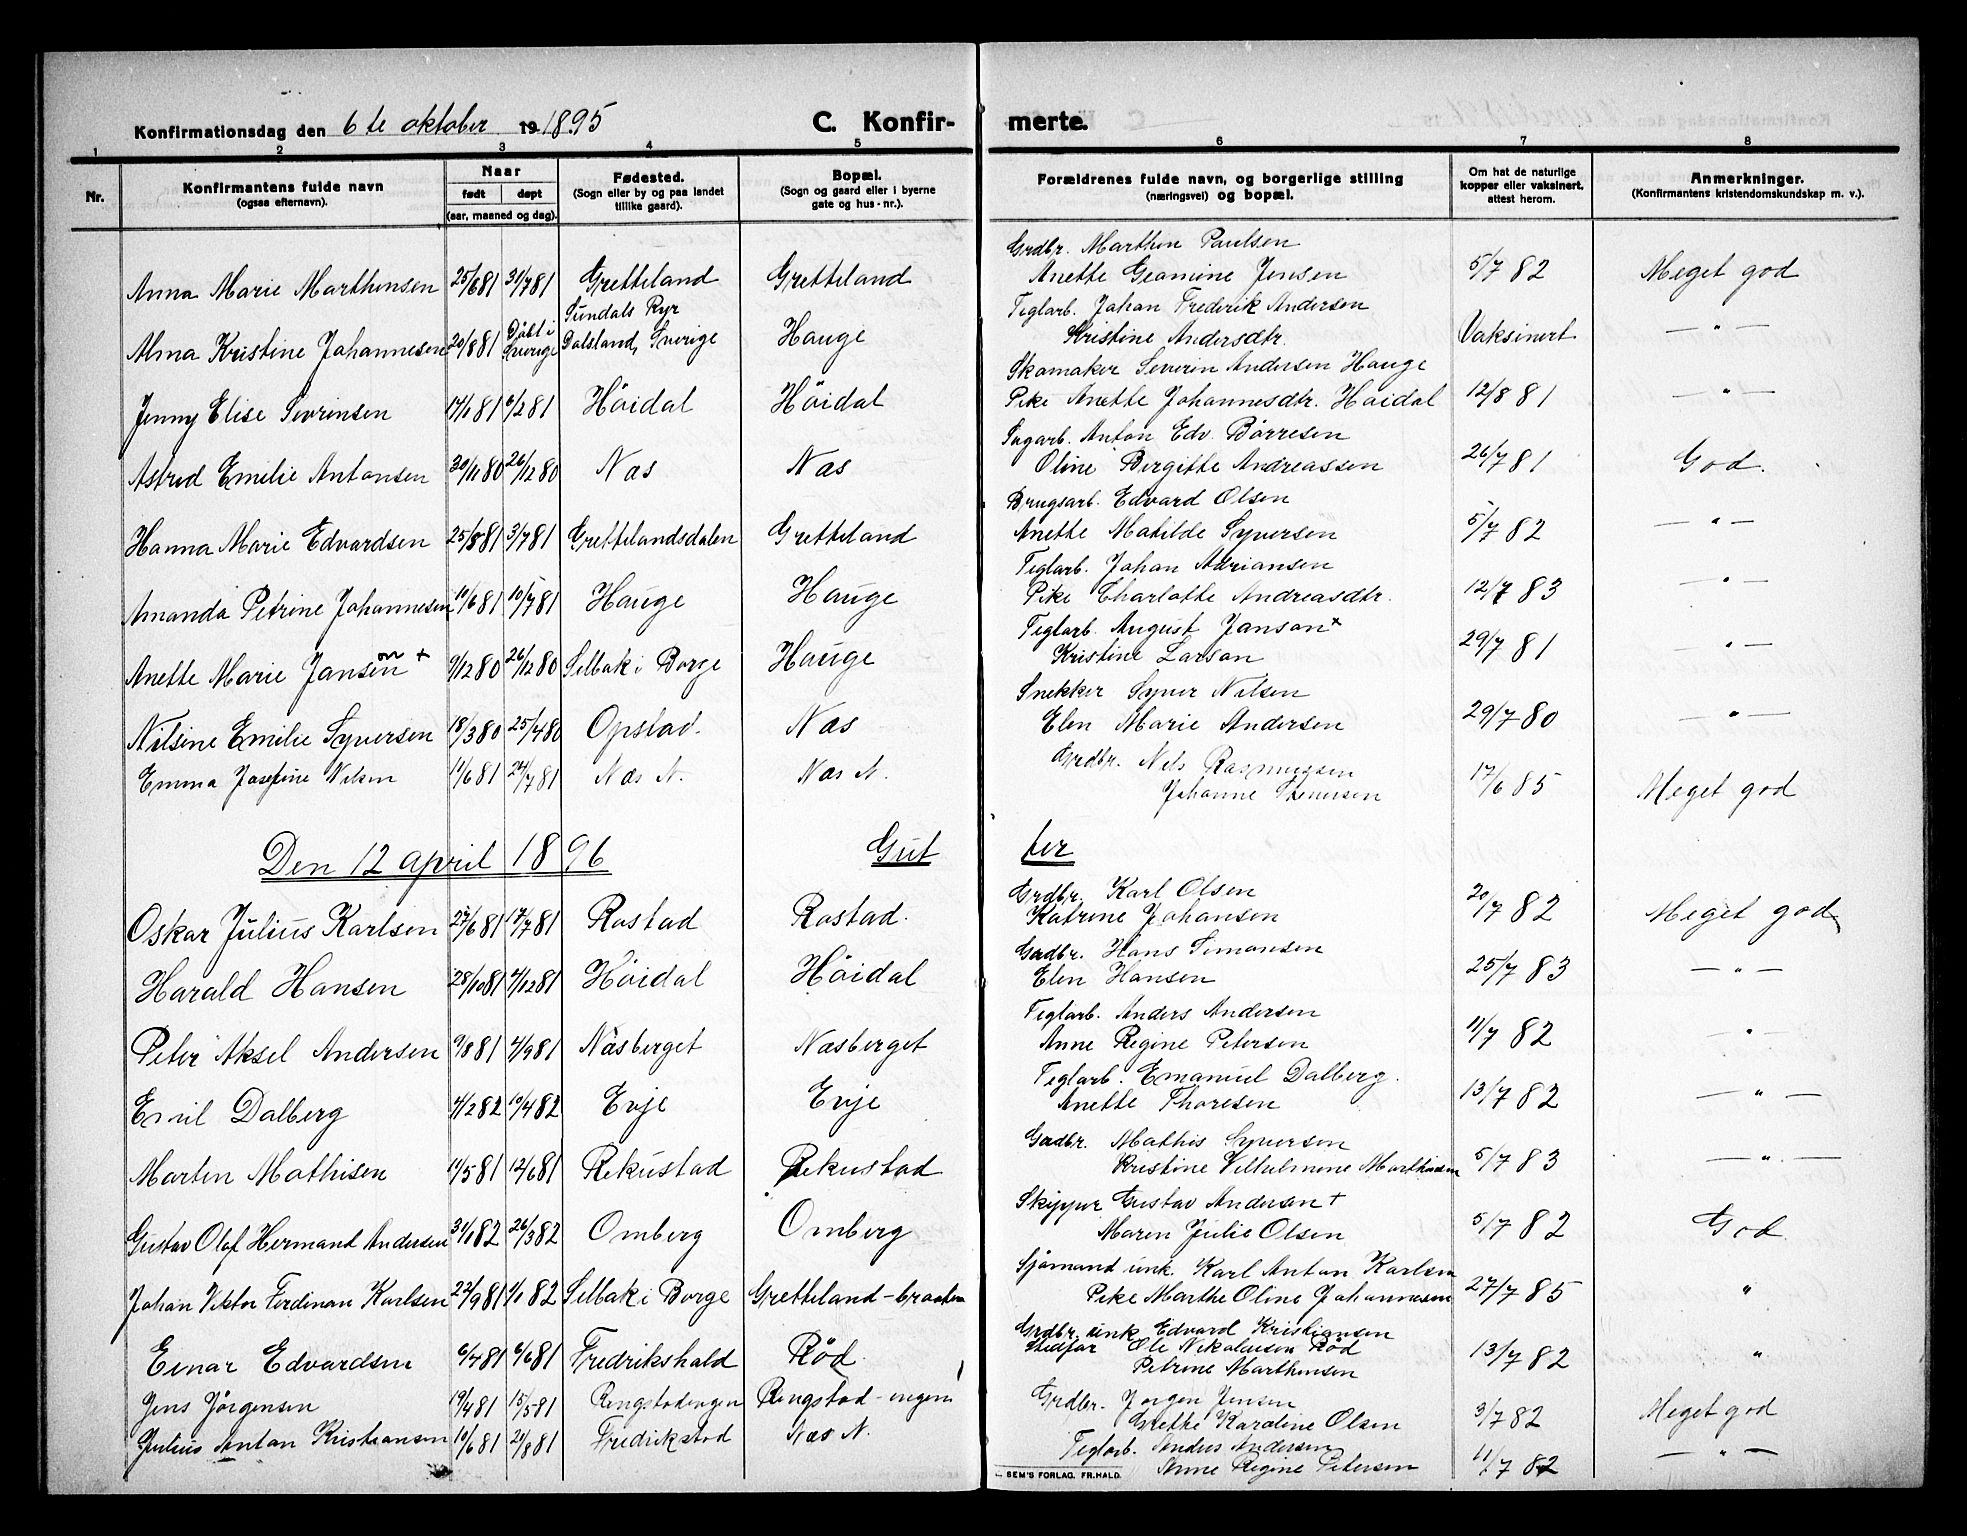 Konfirmationsdag den 6te oktober 19 1895 C. Konfir- merte.
1 2 3 4 5 6 7 8
Nr. Konfirmantens fulde navn (ogsaa efternavn). Naar født døpt (aar, maaned og dag). Fødested. (Sogn eller by og paa landet tillike gaard). Bopæl. (Sogn og gaard eller i byerne gate og hus-nr.). Forældrenes fulde navn, og borgerlige stilling (næringsvei) og bopæl. Om hat de naturlige kopper eller vaksinert, attest herom. Anmerkninger. (Konfirmantens kristendomskundskap m. v.).
Grdbr. Marthin Paulsen
Anna Marie Marthinsen 25/6 81 31/7 81 Gretteland Gretteland Anette Geamine Jensen 5/7 82 Meget god
Sundals Ryr Teglarb. Johan Frederik Andersen
Alma Kristine Johannesen 20/8 81 Döbt i Sverige Dalsland, Sverige Hauge Kristine Andersdtr. Vaksinert — " —
Skomaker Severin Andersen Hauge
Jenny Elise Sevrinsen 14/1 81 6/2 81 Höidal Höidal Pike Anette Johannesdtr. Höidal 12/8 81 — " —
Sagarb. Anton Edv. Börresen
Astrid Emilie Antonsen 30/11 80 26/12 80 Næs Næs Oline Bergitte Andreassen 26/7 81 God.
Brugsarb. Edvard Olsen
Hanna Marie Edvardsen 25/5 81 3/7 81 Grettelandsdalen Gretteland Anette Matilde Syversen 5/7 82 — " —
Teglarb. Johan Adriansen
Amanda Petrine Johannesen 11/6 81 10/7 81 Hauge Hauge Pike Charlotte Andreasdtr. 12/7 83 — " —
Teglarb. August Janson +
Anette Marie Jansen on + 9/12 80 26/12 80 Selbak i Borge Hauge Kristine Larson 29/7 81 — " —
Snekker Syver Nilsen
Nilsine Emilie Syversen 18/3 80 25/4 80 Opstad. Næs Elen Marie Andersen 29/7 80 — " —
Grdbr. Nils Rasmussen
Emma Josefine Nilsen 11/6 81 24/7 81 Næs N. Næs N. Johanne Thenersen 17/6 85 Meget god
Den 12 april 1896 Gut ter
Grdbr. Karl Olsen
Oskar Julius Karlsen 27/6 81 17/7 81 Rostad Rostad. Katrine Johansen 20/7 82 Meget god
Grdbr. Hans Simonsen
Harald Hansen 28/10 81 4/12 81 Höidal Höidal Elen Hansen 25/7 83 — " —
Teglarb. Anders Andersen
Peter Aksel Andersen 9/8 81 4/9 81 Næsberget Næsberget Anne Regine Petersen 11/7 82 "
Teglarb. Emanuel Dalberg.
Emil Dalberg 4/2 82 10/4 82 Evje Evje Anette Thoresen 13/7 82 — " —
Grdbr. Mathis Syversen
Marten Mathisen 11/5 81 12/6 81 Rekustad Rekustad Kristine Vilhelmine Marthinsen 5/7 83 — " —
Skipper Gustav Andersen +
Gustav Olaf Hermand Andersen 31/1 82 26/3 82 Omberg Omberg Maren Julie Olsen 5/7 82 God
Sjömand unk. Karl Anton Karlsen
Johan Viktor Ferdinan Karlsen 22/9 81 1/1 82 Selbak i Borge Gretteland-braaten Pike Marthe Oline Johannesen 27/7 85 "
Grdbr. unk Edvard Kristiansen
Stedfar Ole Nikolaisen Röd
Einar Edvardsen 6/4 81 6/6 81 Fredrikshald Röd. Petrine Marthinsen 13/7 82 "
Grdbr. Jörgen Jensen
Jens Jörgensen 19/4 81 15/5 81 Ringstadengen Ringstad-engen Grethe Karoline Olsen 3/7 82 Meget god
Teglarb. Anders Andersen
Julius Anton Kristiansen 10/6 81 21/8 81 Fredrikstad Næs N. Anne Regine Petersen 11/7 82 — " —
SEM'S FORLAG. FR.HALD.